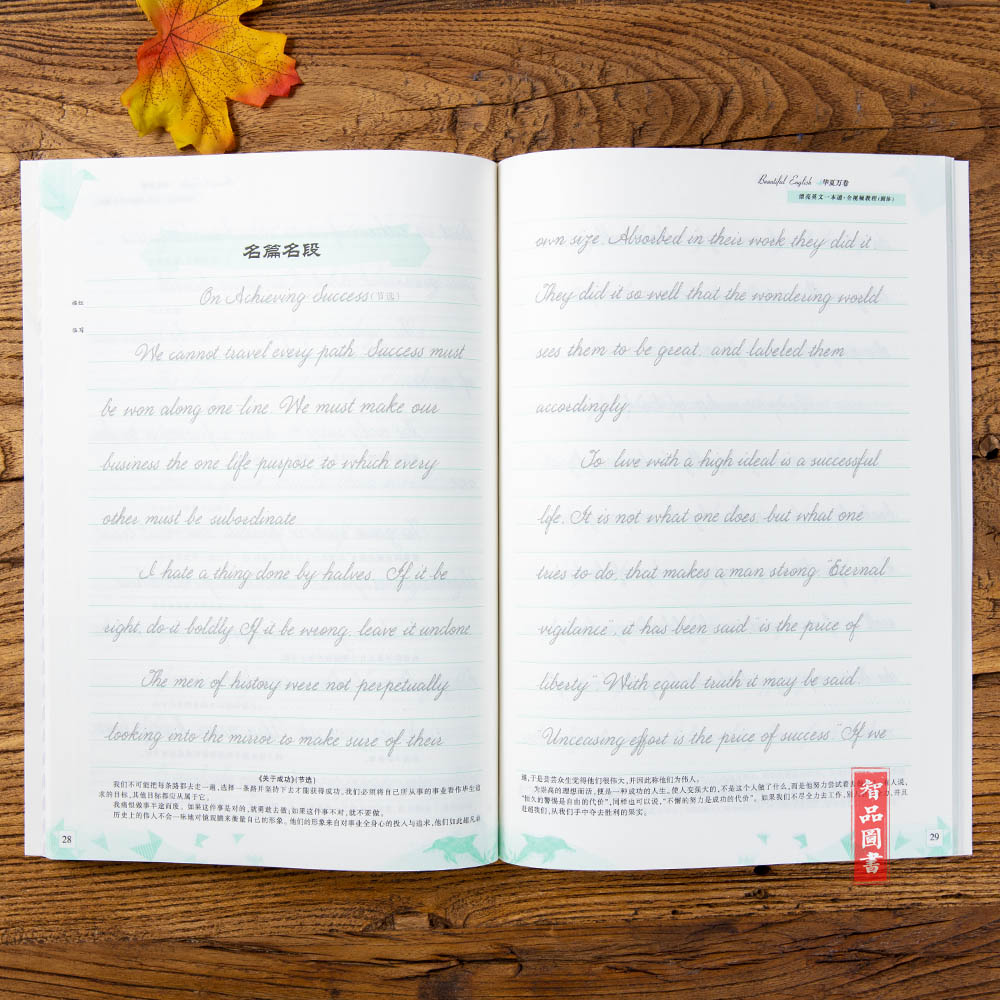 名篇名段
On Achieving Success(节选)
描红
临写
We cannot travel every path. Success must
be won along one line. We must make our
business the one life purpose to which every
other must be subordinate
I hate a thing done by halves. If it be
right, do it boldly If it be wrong, leave it undone
The men of history were not perpetually
looking into the mirror to make sure of their
《关于成功》(节选)
我们不可能把每条路都去走一遍,选择一条路并坚持下去才能获得成功,我们必须将自己所从事的事业看作毕生追
求的目标,其他目标都应从属于它。
我痛恨做事半途而废,如果这件事是对的,就勇敢去做;如果这件事不对,就不要做。
历史上的伟人不会一味地对镜观瞻来衡量自己的形象。他们的形象来自对事业全身心的投入与追求,他们如此超凡
28
Beautiful English 华夏万卷
漂亮英文一本通·全视频教程(圆体)
own size. Absorbed in their work they did it
They did it so well that the wondering world
sees them to be great, and labeled them
accordingly.
To live with a high ideal is a successful
life. It is not what one does, but what one
tries to do, that makes a man strong. "Eternal
vigilance", it has been said "is the price of
liberty" With equal truth it may be said.
"Unceasing effort is the price of success" If we
,于是芸芸众生觉得他们很伟大,并因此称他们为伟人。
为崇高的理想而活,便是一种成功的人生。使人变强大的,不是这个人做了什么,而是他努力尝试着去
人说,
"恒久的警惕是自由的代价",同样也可以说,"不懈的努力是成功的代价"。如果我们不尽全力去工作,别
力,并且
赶超我们,从我们手中夺去胜利的果实。
29
智品圖書